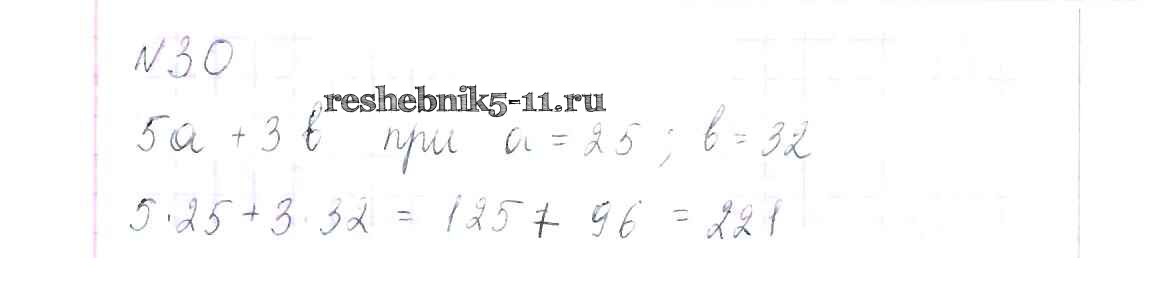 N30
reshebnik5-11.ru
5a + 3b при a = 25 ; b = 32
5·25 + 3·32 = 125 + 96 = 221